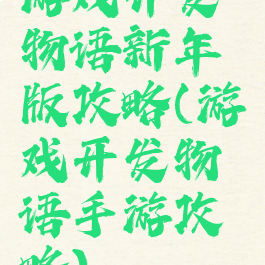 游戏开发
物语新年
版攻略(游
戏开发物
语手游攻
略)